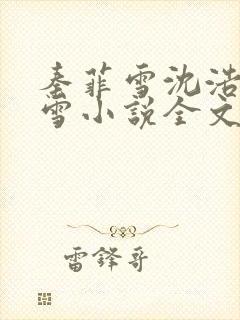 秦菲雪沈浩
雪小说全文
雷锋哥